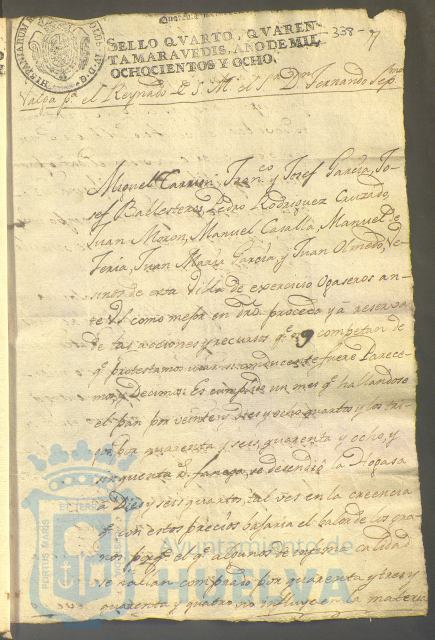 338
SELLO QVARTO, QVAREN-
TAMARAVEDIS, AÑO DE MIL
OCHOCIENTOS Y OCHO.
Valga pa. el Reynado de S. M. el Sr. Dn. Fernando Sepmo.
Miguel Carrion, Franco. y Josef Garcia, Jo-
sef Ballesteros, Pedro Rodriguez Cruzado,
Juan Moron, Manuel Casalla, Manuel de
Feria, Juan Maria Garcia y Juan Olmedo, Ve-
sinos de esta Villa de exercicio Ogaseros an-
te Vd como mejor en dro. proceda y a reserva
de las acciones y recursos qe. nos competan de
qe. protestamos usar si conducente fuere Parece-
mos y Decimos: Es cumplido un mes qe. hallandose
el pan por veinte y tres y ocho quartos y los tri-
gos por quarenta y seis, quarenta y ocho, y
sinquenta rs. fanega, se descendió la Hogasa
a Diez y seis quartos, tal ves en la creencia
qe. con estos precios bajaria el balor de los gra-
nos
el qe. algunos
en
se avian comprado por quarenta y tres y
quarenta y quatro, no influye en la materia
Ayuntamiento de
HUELVA
PORTUS MARIS
ET TERRAE